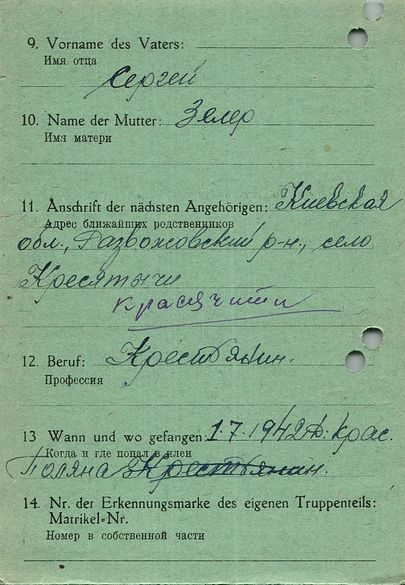 9. Vorname des Vaters:
Имя отца
Сергей
10. Name der Mutter: Зелер
Имя матери
11. Anschrift der nächsten Angehörigen: Киевская
Адрес ближайших родственников
обл., Розважовский р-н., село
Кресятычи
Красячити
12. Beruf: Крестьянин.
Профессия
13 Wann und wo gefangen: 1.7.1942 Крас.
Когда и где попал в плен
Поляна Крестьянин.
14. Nr. der Erkennungsmarke des eigenen Truppenteils:
Matrikel-Nr.
Номер в собственной части